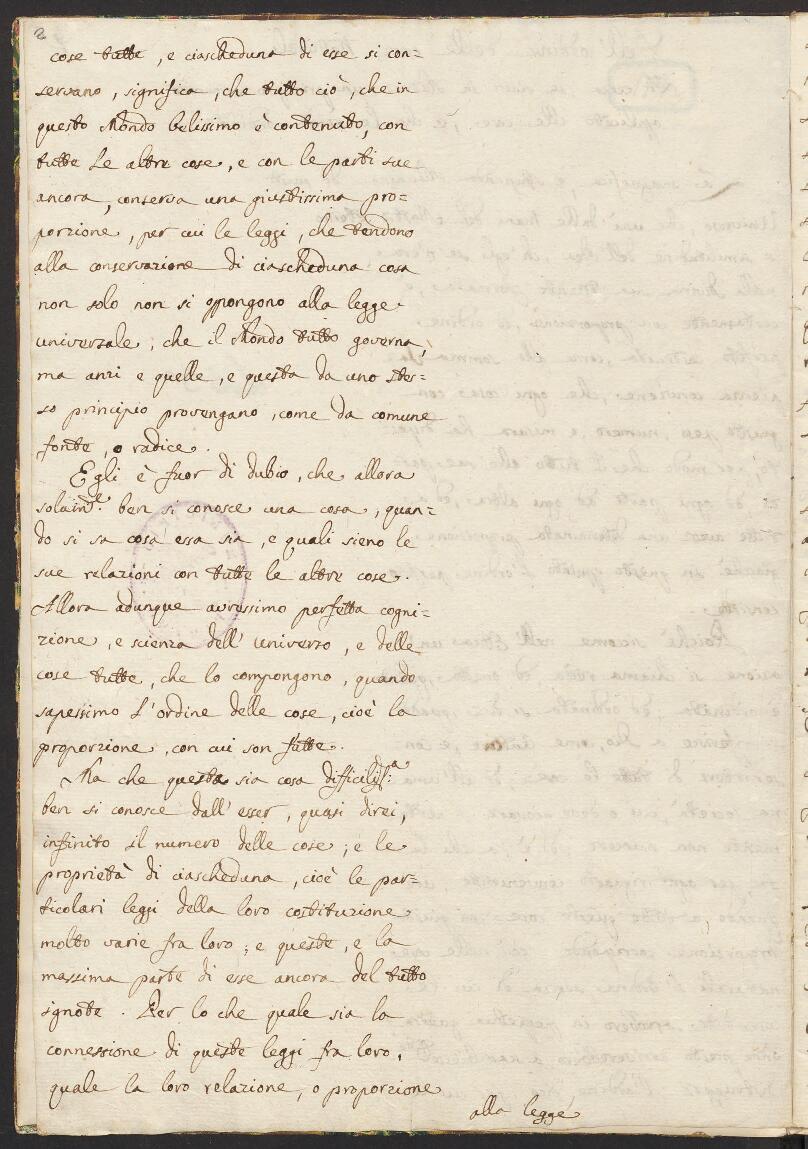 2
cose tutte, e ciascheduna di esse si con=
servano, significa, che tutto ciò, che in
questo Mondo belissimo è contenuto, con
tutte le altre cose, e con le parti sue
ancora, conserva una giustissima pro=
porzione, per cui le leggi, che tendono
alla conservazione di ciascheduna cosa
non solo non si oppongono alla legge
universale, che il Mondo tutto governa,
ma anzi e quelle, e questa da uno stes=
so principio provengano, come da comune
fonte, o radice.
Egli è fuor di dubio, che allora
solam.e ben si conosce una cosa, quan=
do si sa cosa essa sia, e quali sieno le
sue relazioni con tutte le altre cose.
Allora adunque avressimo perfetta cogni=
zione, e scienza dell' universo, e delle
cose tutte, che lo compongono, quando
sapessimo l'ordine delle cose, cioè la
proporzione, con cui son fatte.
Ma che questa sia cosa difficiliss.a
ben si conosce dall' esser, quasi direi,
infinito il numero delle cose; e le
proprietà di ciascheduna, cioè le par=
ticolari leggi della loro costituzione
molto varie fra loro; e queste, e la
massima parte di esse ancora del tutto
ignote. Per lo che quale sia la
connessione di queste leggi fra loro,
quale la loro relazione, o proporzione
alla legge